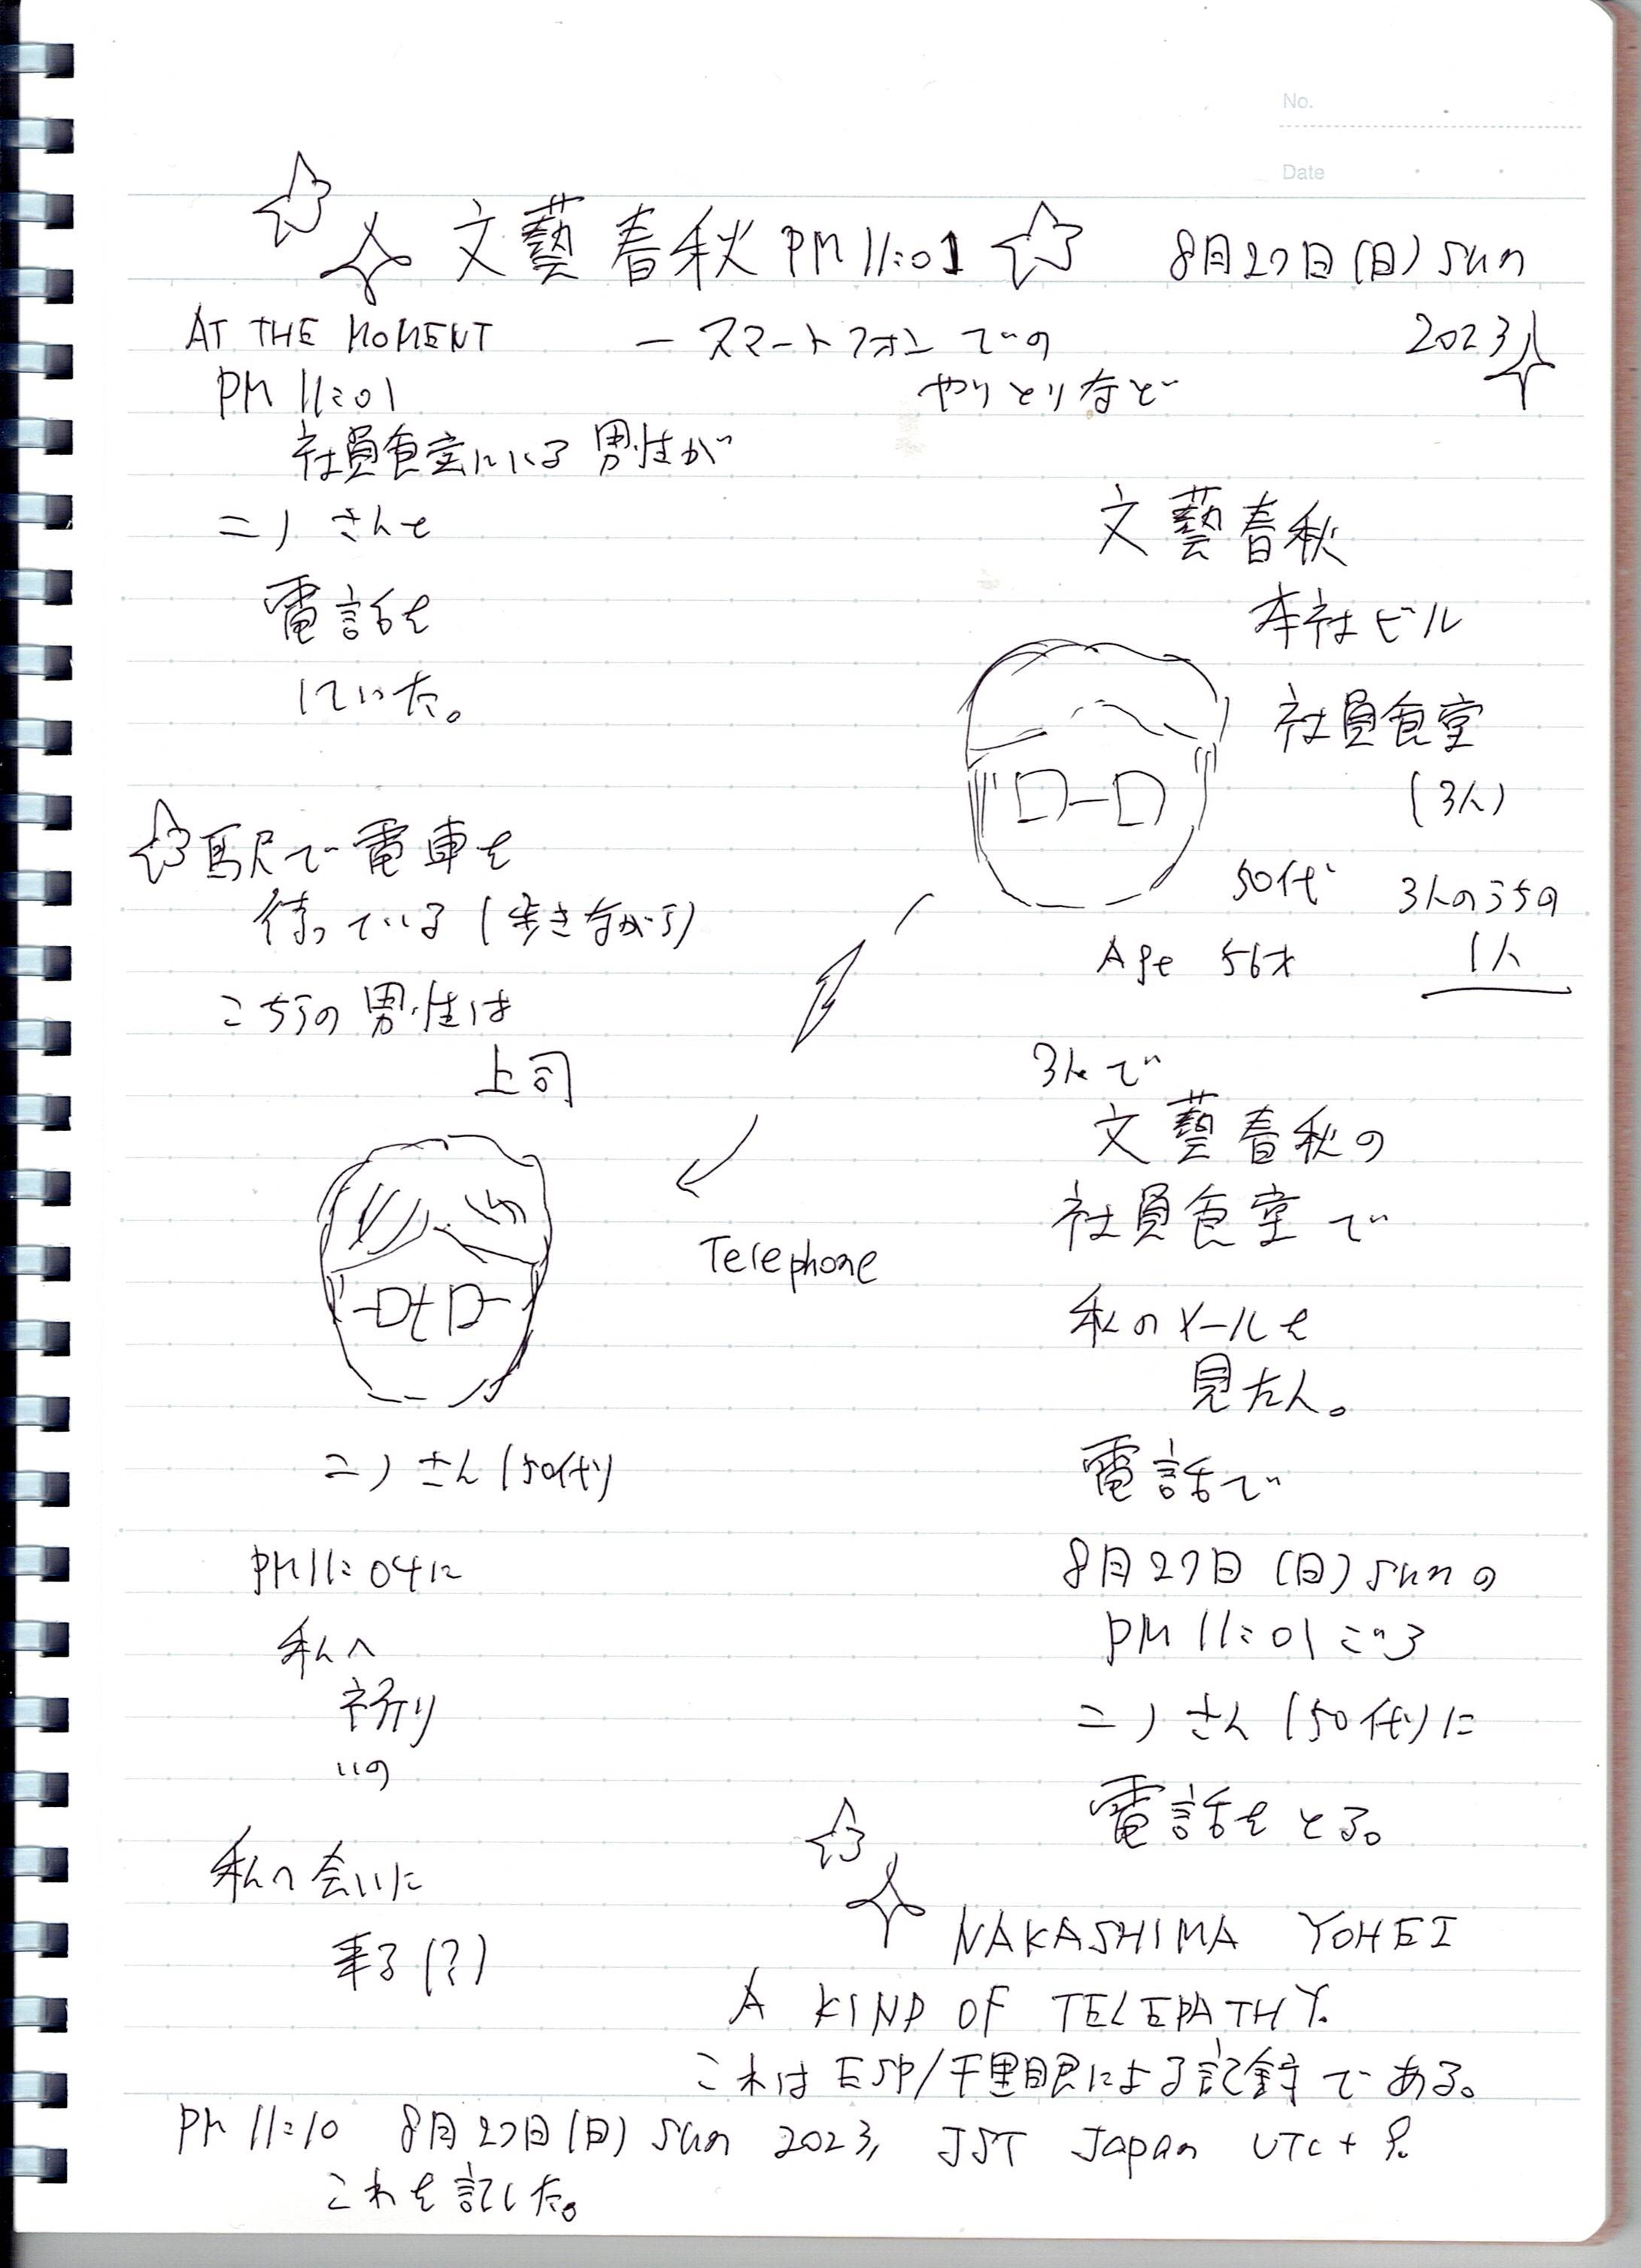 No.
Date
文藝春秋 PM 11:01
8月27日(日) sun
2023
AT THE MOMENT
PM 11:01
― スマートフォンでの
やりとりなど
社員食堂にいる男性が
ニノさんと
電話を
していた。
文藝春秋
本社ビル
社員食堂
(3人)
50代
3人のうちの
1人
Age 56才
駅で電車を
待っている(歩きながら)
こちらの男性は
上司
Telephone
ニノさん(50代)
PM 11:04に
私へ
いの
私へ会いに
来る(?)
3人で
文藝春秋の
社員食堂で
私のメールを
見た人。
電話で
8月27日(日) sunの
PM 11:01ごろ
ニノさん(50代)に
電話をとる。
NAKASHIMA YOHEI
A KIND OF TELEPATHY.
これはESP/千里眼による記録である。
PM 11:10 8月27日(日) sun 2023, JST Japan UTC+9.
これを記した。